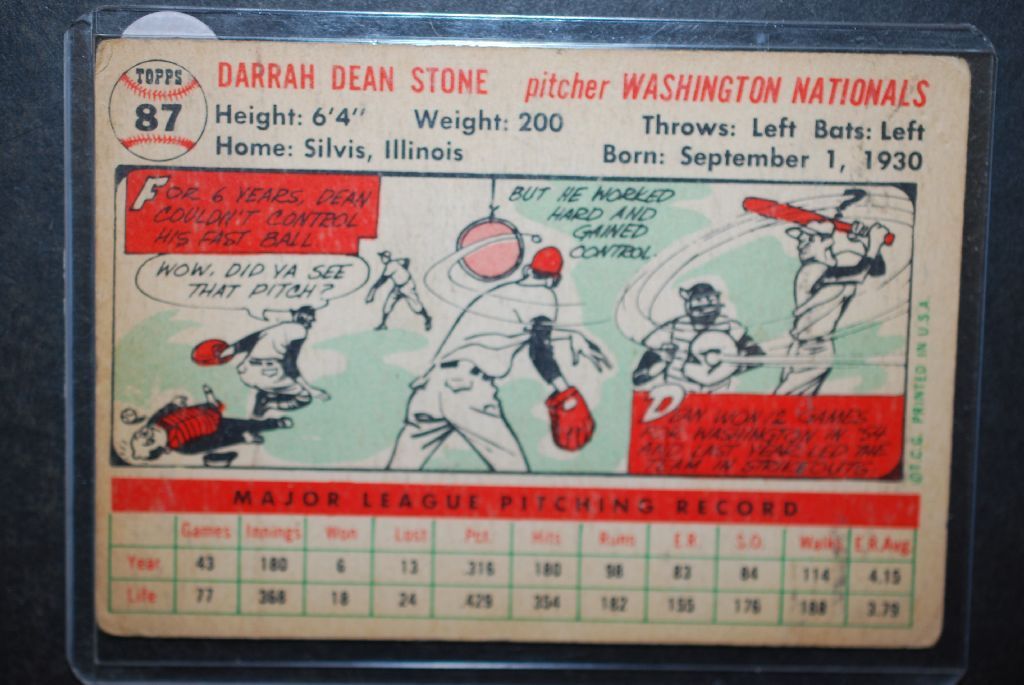 TOPPS
87
DARRAH DEAN STONE pitcher WASHINGTON NATIONALS
Height: 6'4" Weight: 200 Throws: Left Bats: Left
Home: Silvis, Illinois Born: September 1, 1930
FOR 6 YEARS, DEAN
COULDN'T CONTROL
HIS FAST BALL
WOW, DID YA SEE
THAT PITCH?
BUT HE WORKED
HARD AND
GAINED
CONTROL.
?
DEAN WON 12 GAMES
FOR WASHINGTON IN '54
AND LAST YEAR LED THE
TEAM IN STRIKEOUTS
© T.C.G. PRINTED IN U.S.A.
MAJOR LEAGUE PITCHING RECORD
Games Innings Won Lost Pct. Hits Runs E.R. S.O. Walks E.R.Avg.
Year 43 180 6 13 .316 180 98 83 84 114 4.15
Life 77 368 18 24 .429 354 182 155 176 188 3.79